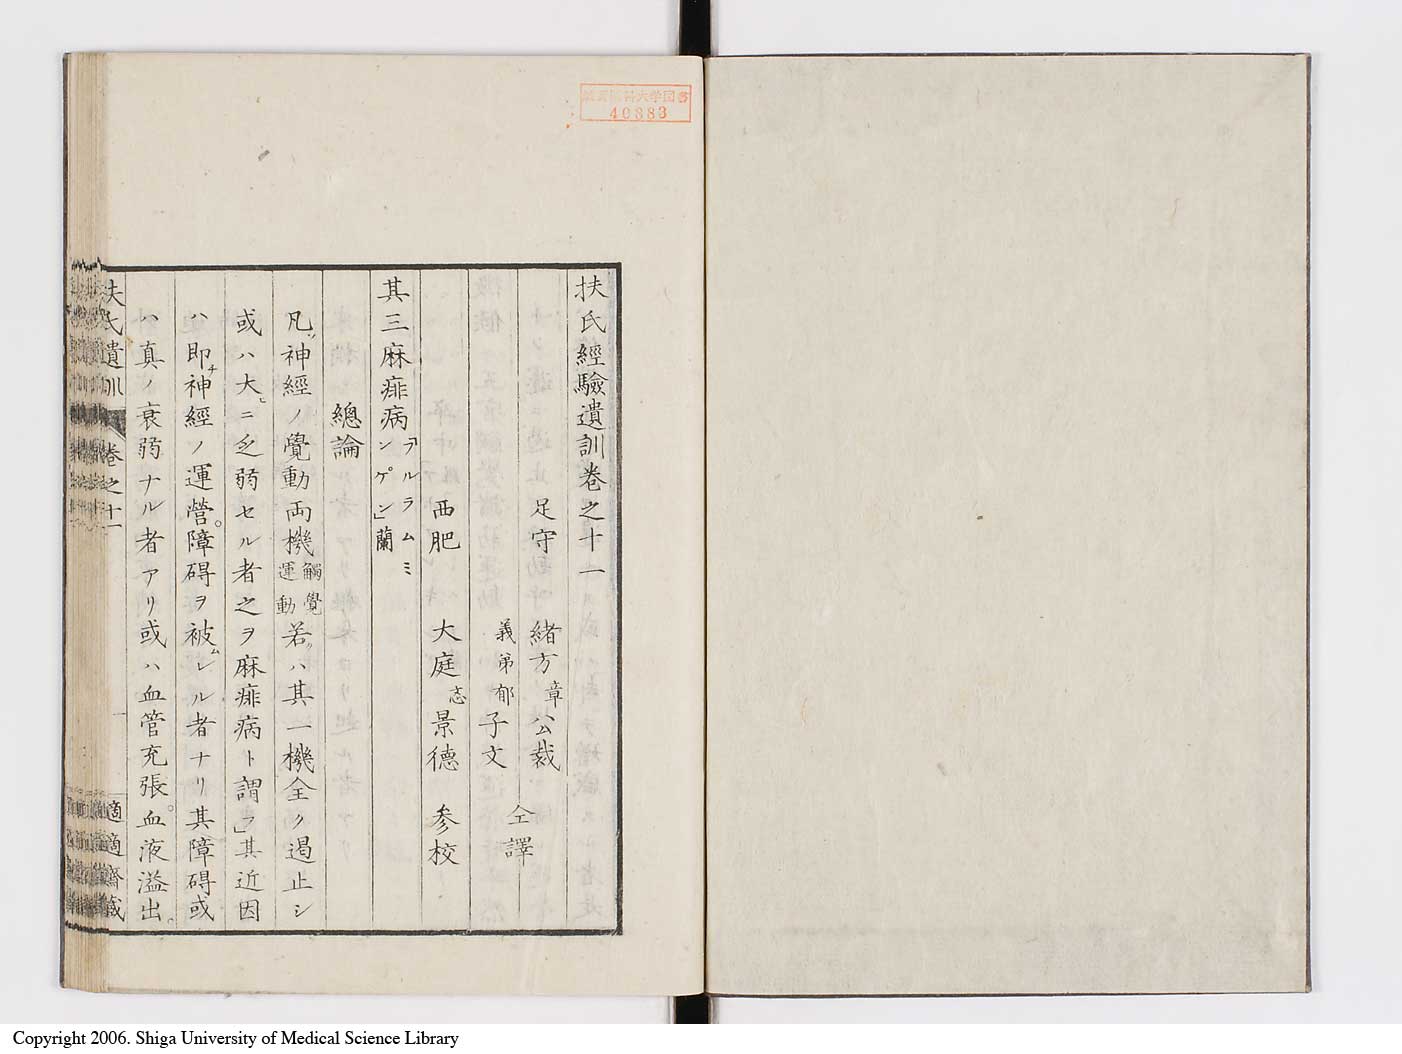 扶氏經驗遺訓卷之十一
足守 緒方章公裁
義弟郁子文 仝譯
西肥 大庭忞景德 參校
其三麻痱病「フルラムミンゲン」蘭
總論
凡ソ神經ノ覺動両機觸覺運動若ハ其一機全ク遏止シ
或ハ大ヒニ乏弱セル者之ヲ麻痱病ト謂フ」其近因
ハ即チ神經ノ運營。障碍ヲ被ムレル者ナリ其障碍或
ハ真ノ衰弱ナル者アリ或ハ血管充張。血液溢出。
扶氏遺訓 卷之十一
適適齋藏
医科大学図書
40883
Copyright 2006. Shiga University of Medical Science Library